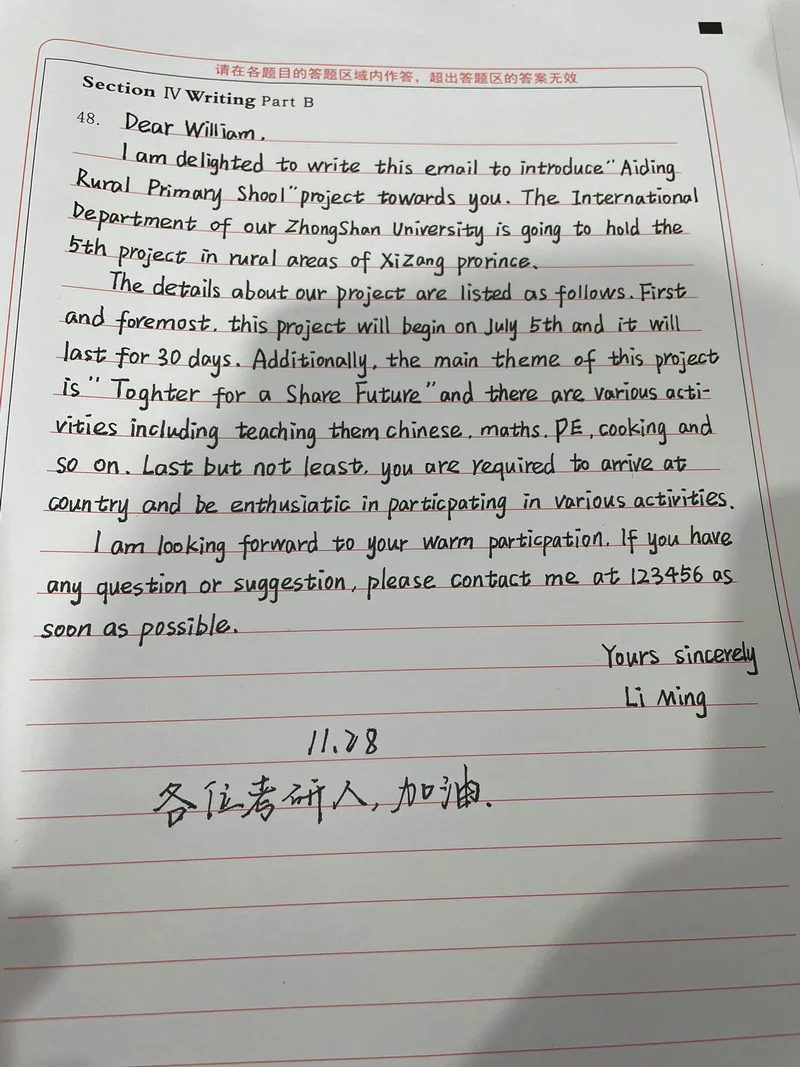 请在各题目的答题区域内作答，超出答题区的答案无效
Section IV Writing Part B
48. Dear William,
I am delighted to write this email to introduce "Aiding
Rural Primary Shool" project towards you. The International
Department of our ZhongShan University is going to hold the
5th project in rural areas of XiZang prorince.
The details about our project are listed as follows. First
and foremost, this project will begin on July 5th and it will
last for 30 days. Additionally, the main theme of this project
is "Toghter for a Share Future" and there are various acti-
vities including teaching them chinese, maths, PE, cooking and
so on. Last but not least, you are required to arrive at
country and be enthusiatic in particpating in various activities.
I am looking forward to your warm particpation. If you have
any question or suggestion, please contact me at 123456 as
soon as possible.
Yours sincerely
Li Ming
11.28
各位考研人,加油.